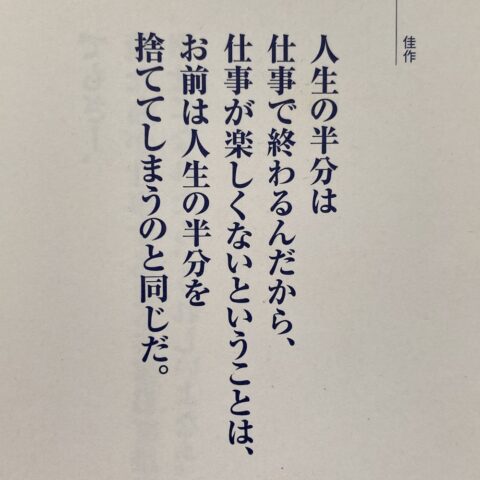 佳作
人生の半分は
仕事で終わるんだから、
仕事が楽しくないということは、
お前は人生の半分を
捨ててしまうのと同じだ。